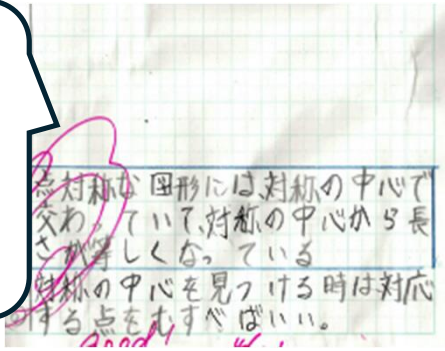 点対称な図形には、対称の中心で
交わっていて、対称の中心から長
さが等しくなっている
対称の中心を見つける時は対応
する点をむすべばいい。
good!